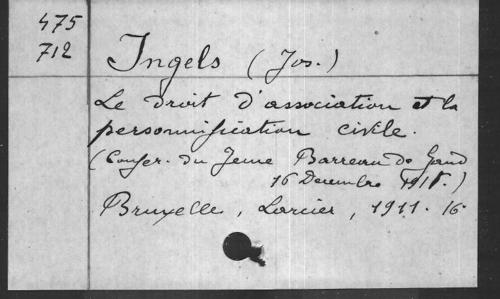 475
712
Ingels (Jos.)
Le droit d'association et la
personnification civile.
(Confér. du Jeune Barreau de Gand
16 Decembre)
Bruxelles, Larcier, 1911. 16